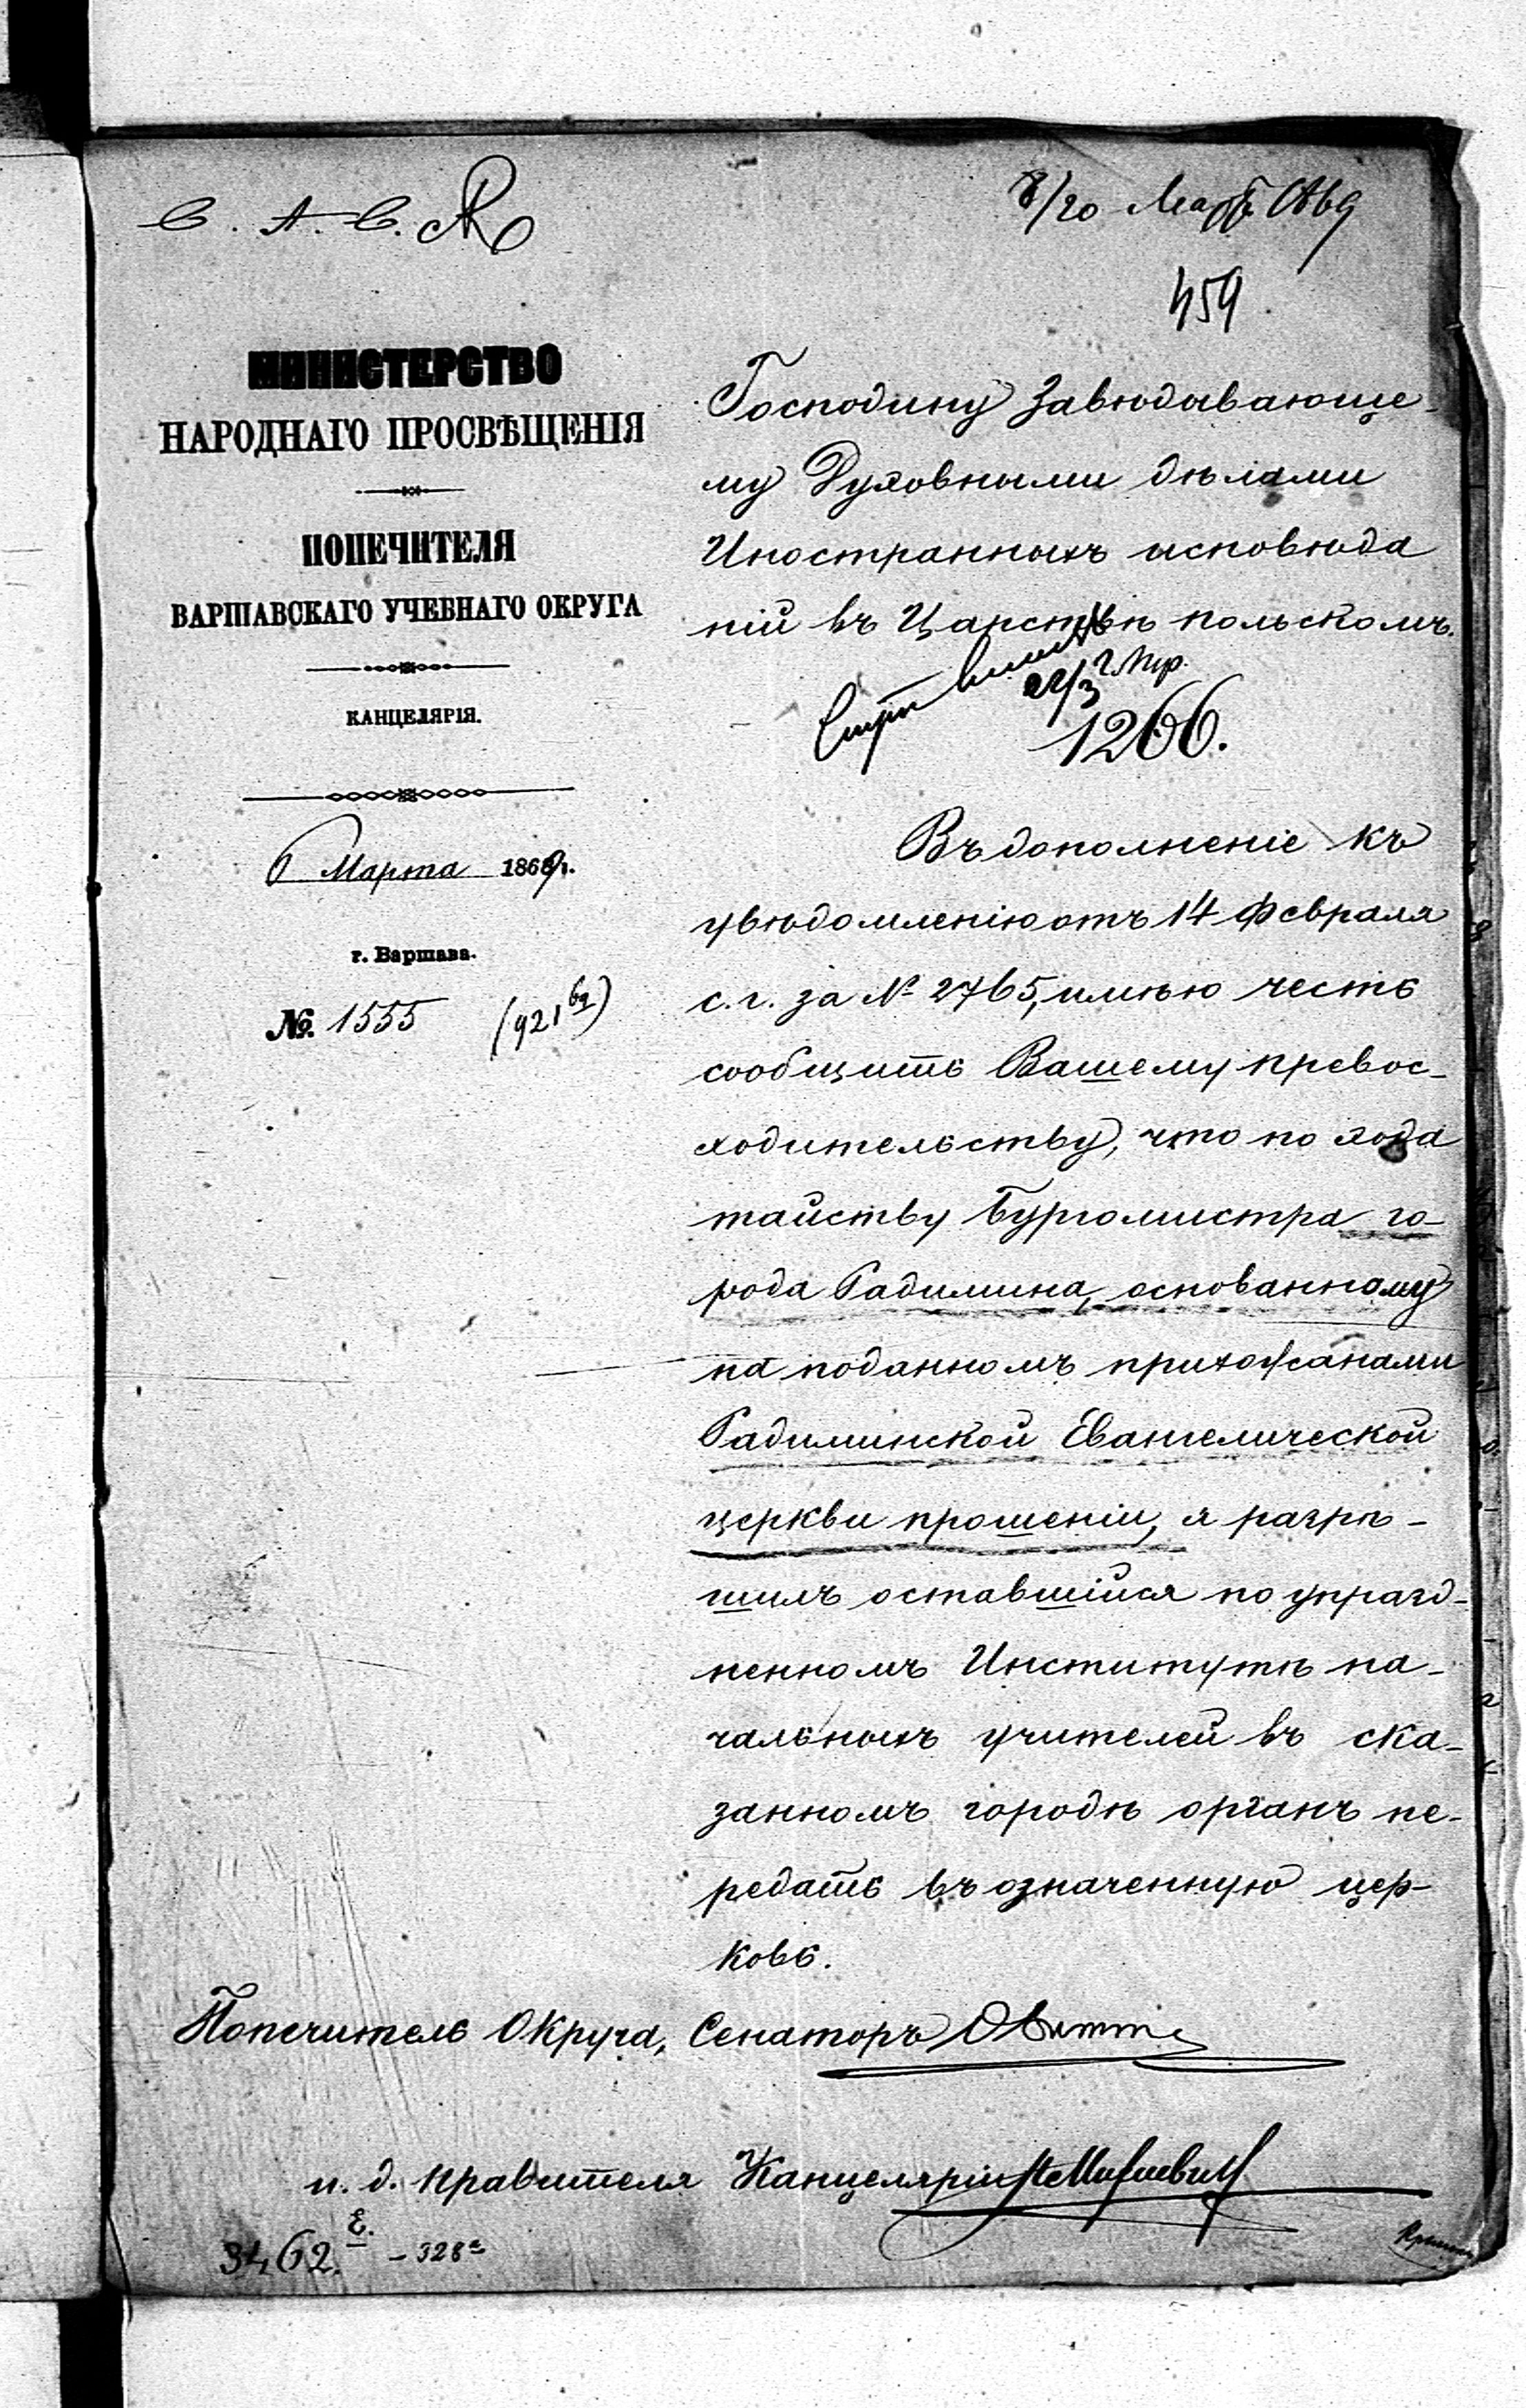 8/20 Марта 1869
459
МИНИСТЕРСТВО
НАРОДНАГО ПРОСВѢЩЕНІЯ
ПОПЕЧИТЕЛЯ
ВАРШАВСКАГО УЧЕБНАГО ОКРУГА
КАНЦЕЛЯРІЯ.
6 Марта 1869 г.
г. Варшава.
№ 1555
Господину Завѣдывающе-
му Духовными дѣлами
Иностранныхъ исповѣда
ній въ Царствѣ польскомъ.
1266.
Въ дополненіе къ
увѣдомленію отъ 14 Февраля
с. г. за № 2765, имѣю честь
сообщить Вашему превос-
ходительству, что по хода
тайству Бургомистра го-
рода Радимина, основанному
на поданномъ прихожанами
Радиминской Евангелической
церкви прошеніи, я разрѣ-
шилъ оставшійся по упразд-
ненномъ Институтѣ на-
чальныхъ учителей въ ска-
занномъ городѣ органъ пе-
редать въ означенную цер-
ковь.
Попечитель Округа, Сенаторъ Ѳ Витте
и. д. правителя Канцеляріи
3462. Е. – 328